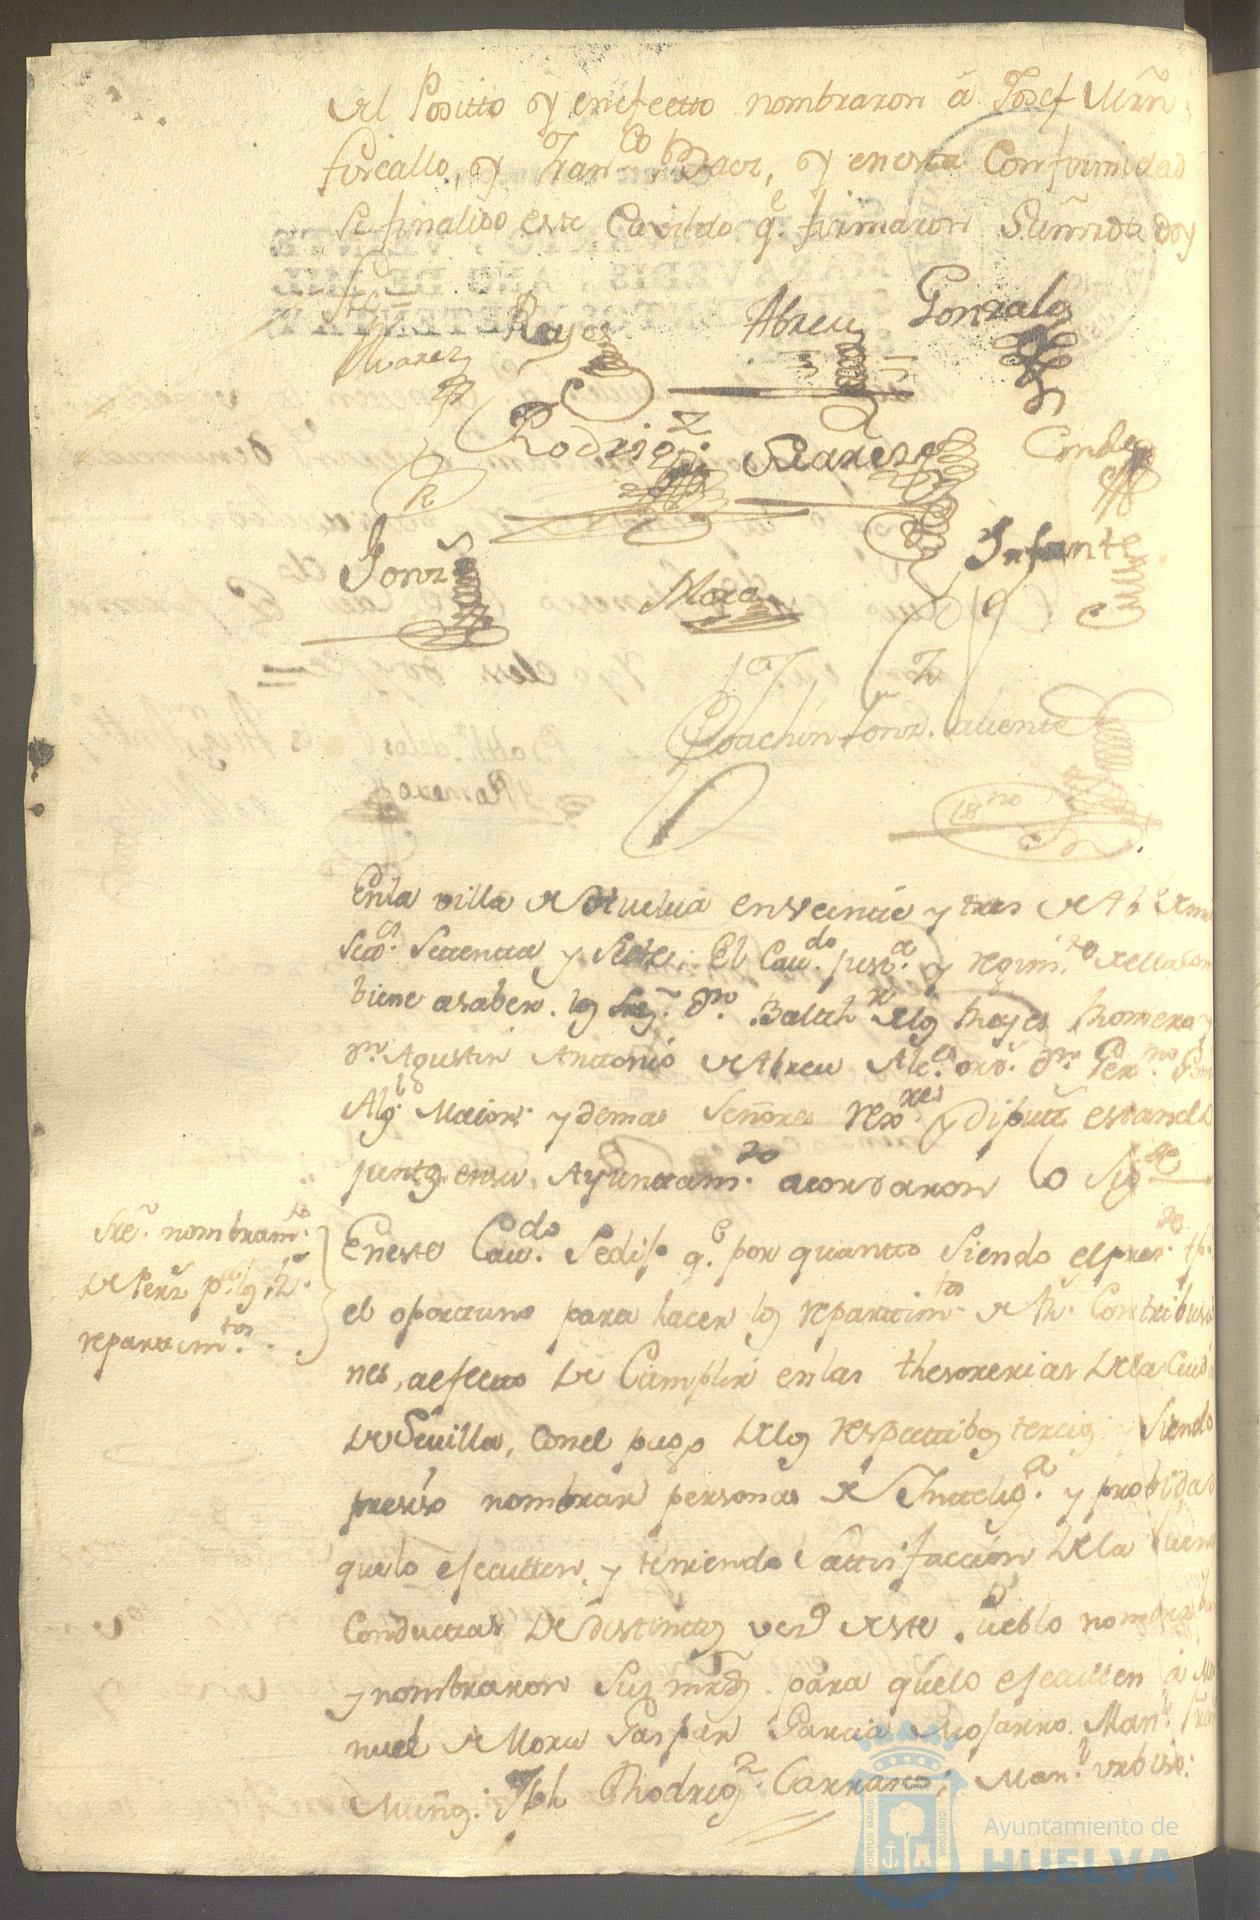 del Positto y en efectto nombraron â Josef Mrñ
fiscallo, y Franco Diaz, y en esta Conformidad
se finalizo este Cavildo qe firmaron Sus mrds doy
fee =
Alvarez
Reyes
Abreu
Gonzalez
Rodrigz
Suarez
Conde
Gonz
Mora
Infante
Joachin Gonz. Valiente
Essno
En la villa de Huelva en veinte y tres de Ab de mill
Setos Setenta y Siete. El Cavdo Justa y regimto de ella con
biene a saber. los Sres Dn Balthr de los Reyes Romero y
Dn Agustin Antonio de Abreu Alcs ordos Dn Ferno
Algl Maior y demas Señores rexres y Diputs estando
juntos en su Ayuntamto acordaron lo Sigte
Sre nombramto
de Perz pa los Rs
repartimtos
En este Cavdo Se dijo qe por quantto Siendo el preste tpo
el oportuno para hacer los repartimtos de Rs Contribucio
nes, a efecto de Cumplir en las thesorerias de la Ciud
de Sevilla, con el pago de los respectibos tercios y Siendo
presiso nombrar personas de Inteliga y probidad
que lo ejecutten, y teniendo Sattisfaccion de la buena
Conducttas de distinctos vezos de este Pueblo nombraban
y nombraron Sus mrds para que lo ejecutten a Ma
nuel de Mora Gaspar Garcia Mojarro. Manl
Muños: Jph Rhodrigz Carrasco; Manl vrbiso:
Ayuntamiento de
HUELVA